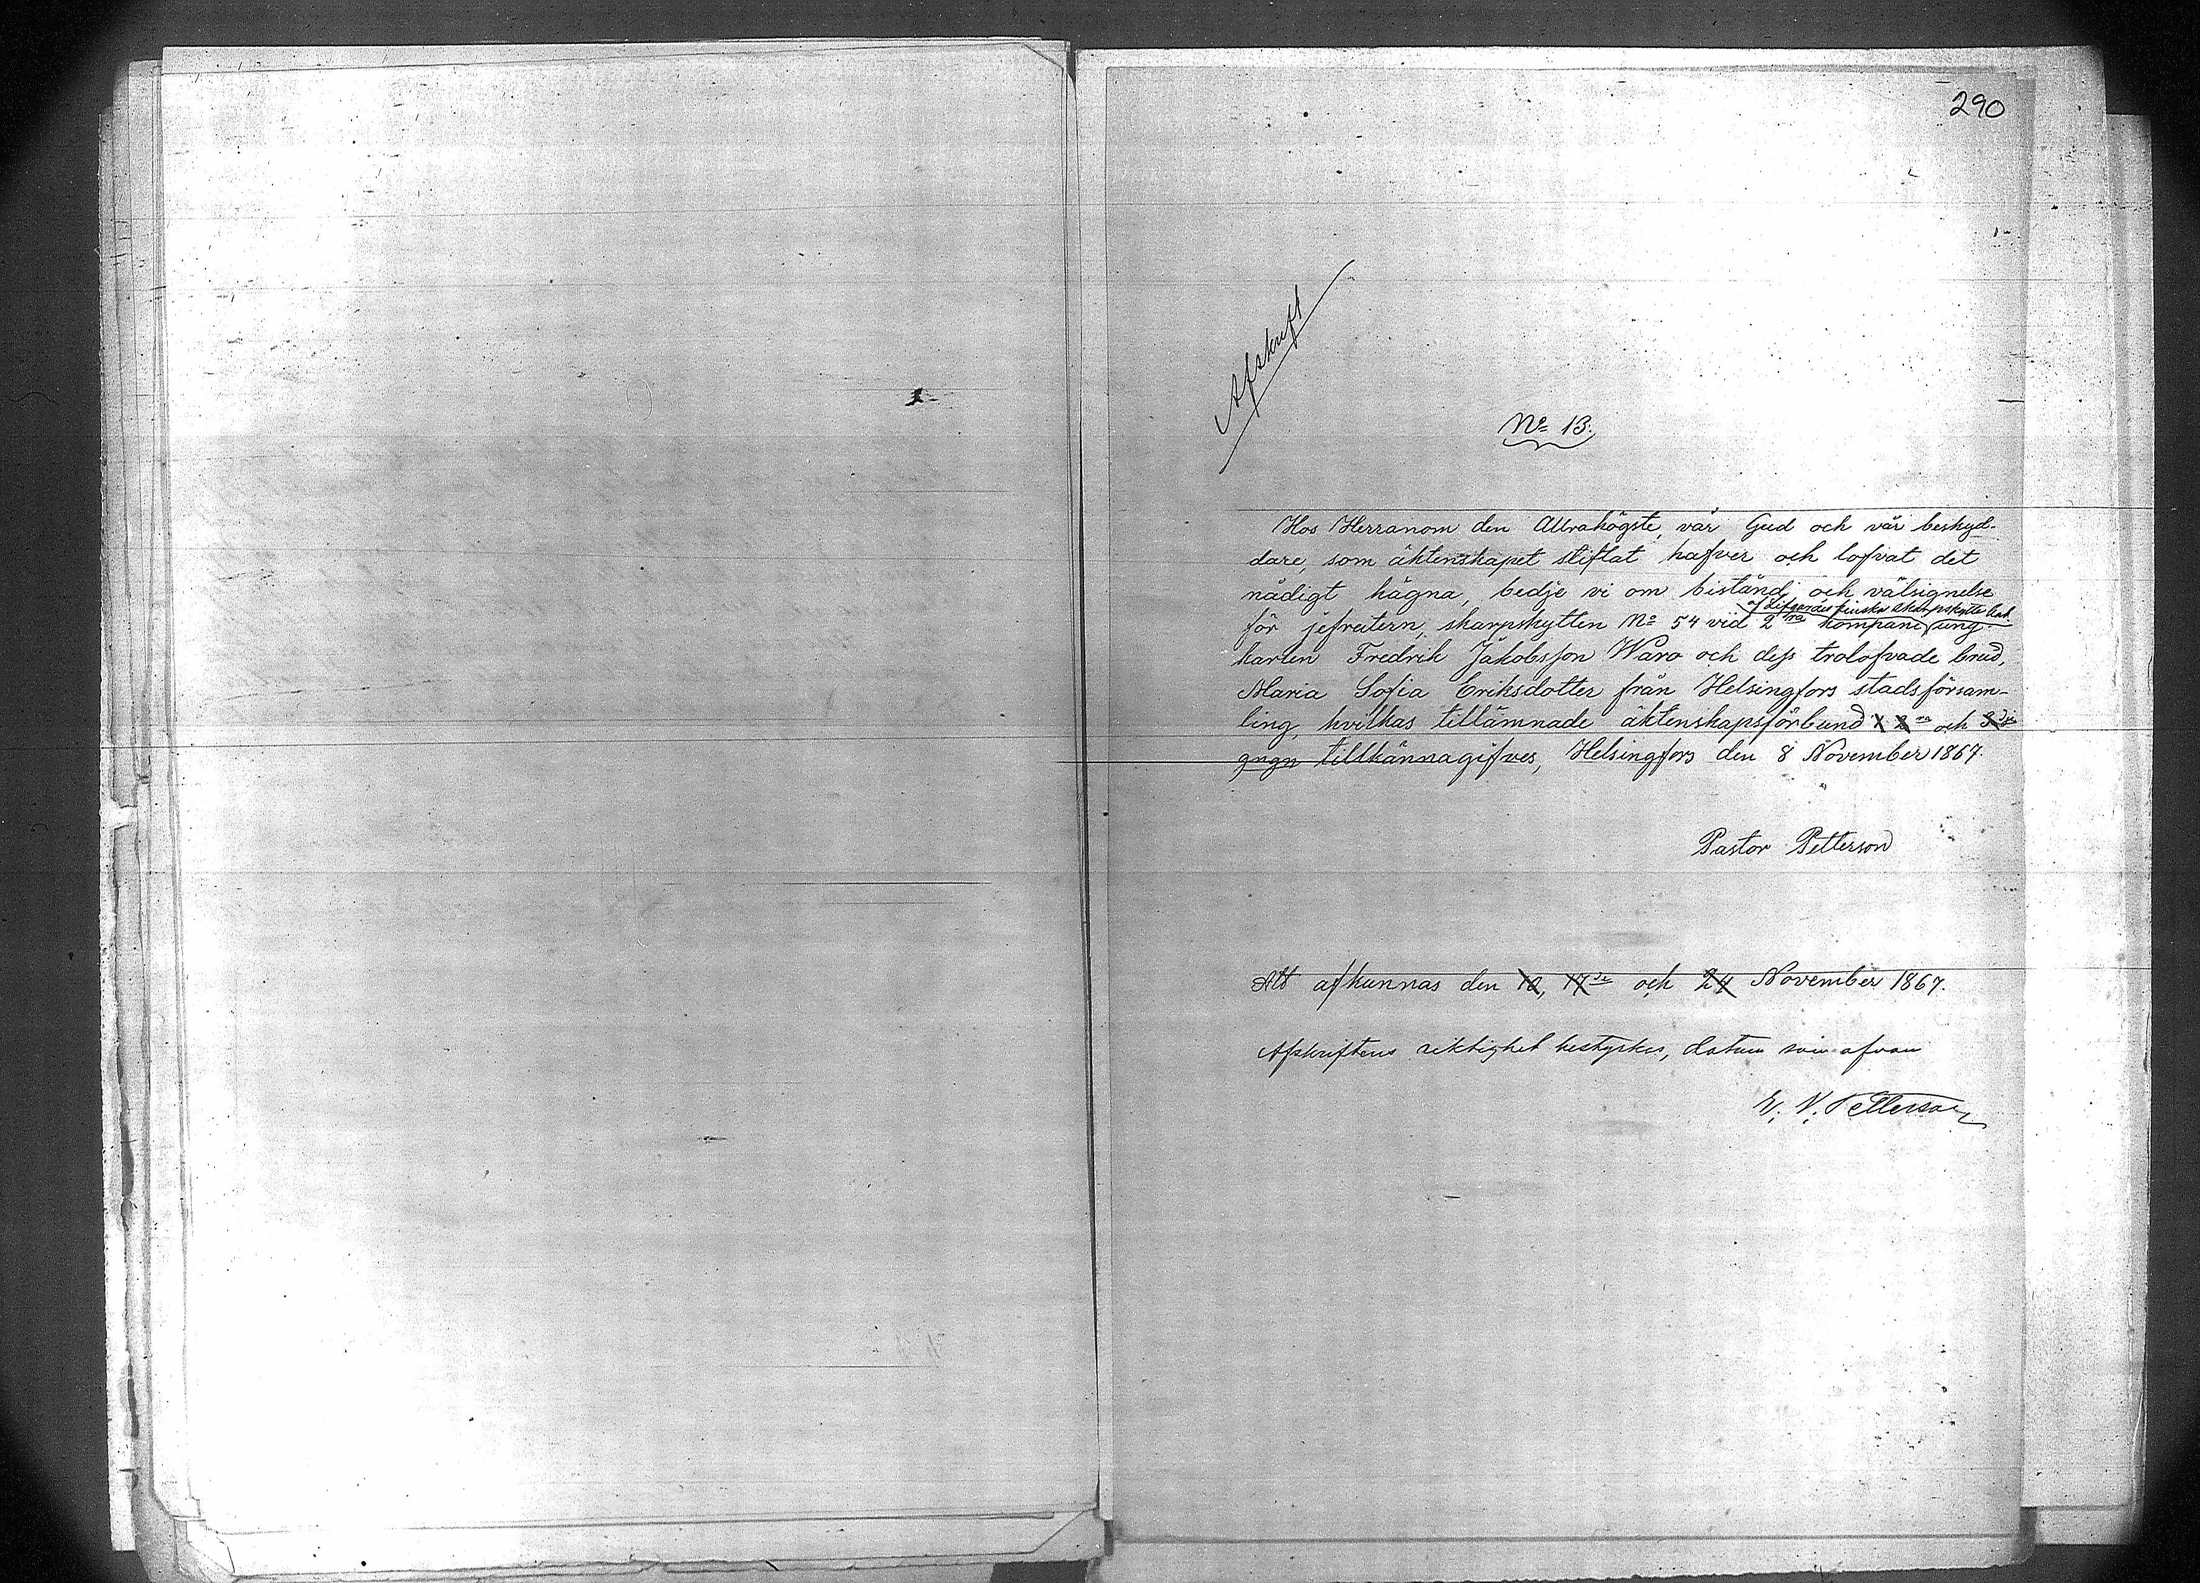 290
Afskrift
No 13.
Hos Herranom den Allrahögste, vår Gud och vår beskyd-
dare, som äktenskapet stiftat hafver och lofvat det
nådigt hägna, bedje vi om bistånd och välsignelse
af Lifgardes finska skarpskytte bat.
för jefreitern, skarpskytten No 54 vid 2dra kompani ung-
karlen Fredrik Jakobsson Waro och dess trolofvade brud,
Maria Sofia Eriksdotter från Helsingfors stadsförsam-
ling, hvilkas tillämnade äktenskapsförbund 1 2ra och 3dje
gngn tillkännagifves, Helsingfors den 8 November 1867.
Pastor Petterson
Att afkunnas den 10, 17de och 24 November 1867.
Afskriftens riktighet bestyrkes, datum som ofvan
V. Petterson